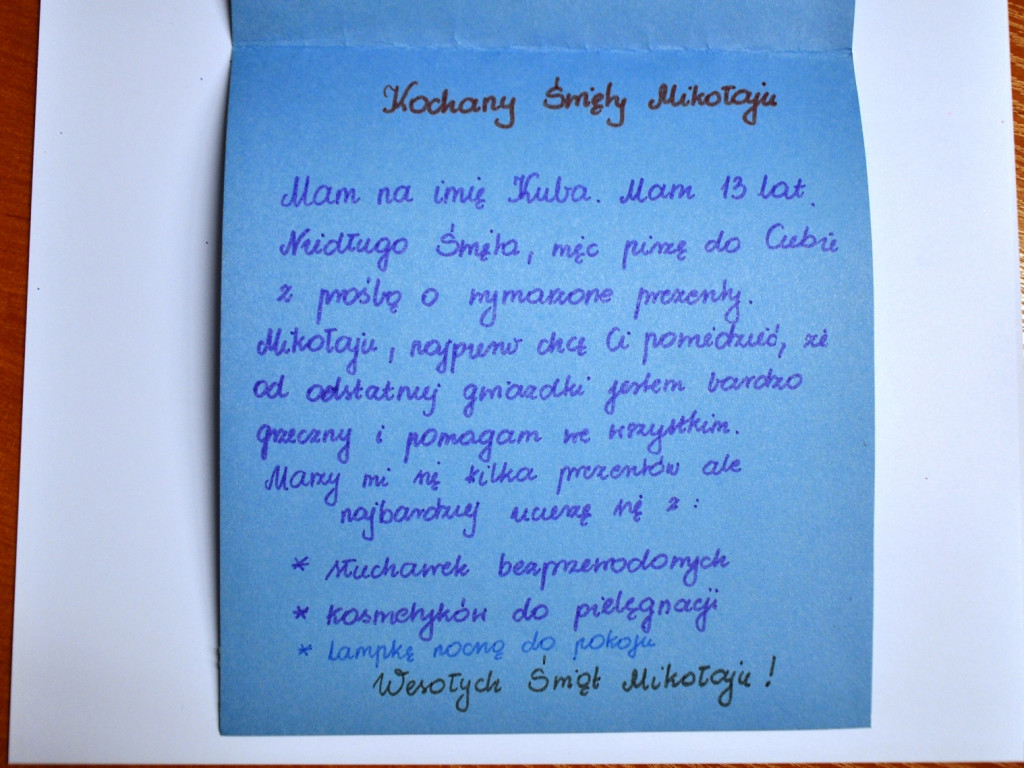 Kochany Święty Mikołaju
Mam na imię Kuba. Mam 13 lat.
Niedługo Święta, więc piszę do Ciebie
z prośbą o wymarzone prezenty.
Mikołaju, najpierw chcę Ci powiedzieć, że
od odstatniej gwiazdki jestem bardzo
grzeczny i pomagam we wszystkim.
Marzy mi się kilka prezentów ale
najbardziej ucieszę się z:
* słuchawek bezprzewodowych
* kosmetyków do pielęgnacji
* lampkę nocną do pokoju
Wesołych Świąt Mikołaju!